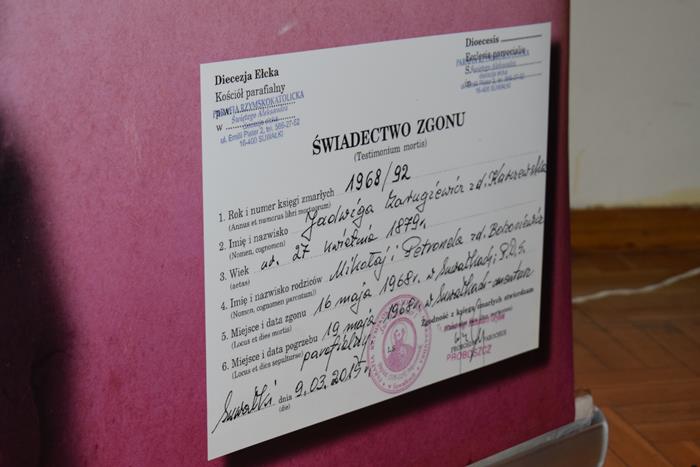 Diecezja Ełcka
Kościół parafialny
p.w.
PARAFIA RZYMSKOKATOLICKA
Świętego Aleksandra
w
ul. Emilii Plater 2, tel. 566-27-62
16-400 SUWAŁKI
Dioecesis
Ecclesia parrocialis
Świętego Aleksandra
16-400 SUWAŁKI
ŚWIADECTWO ZGONU
(Testimonium mortis)
1. Rok i numer księgi zmarłych 1968/92
(Annus et numerus libri mortuorum)
2. Imię i nazwisko Jadwiga Zarugiewicz zd.
(Nomen, cognomen)
3. Wiek ur. 27 kwietnia 1879 r.
(aetas)
4. Imię i nazwisko rodziców Mikołaj i Petronela zd.
(Nomen, cognomen parentum)
5. Miejsce i data zgonu 16 maja 1968 r. w Suwałkach
(Locus et dies mortis)
6. Miejsce i data pogrzebu 19 maja 1968 r. w Suwałkach - cmentarz
(Locus et dies sepulturae) parafialny
Zgodność z księgą zmarłych stwierdzam
L.S.
PROBOSZCZ
Suwałki dnia 9.03.2015 r.
(die)